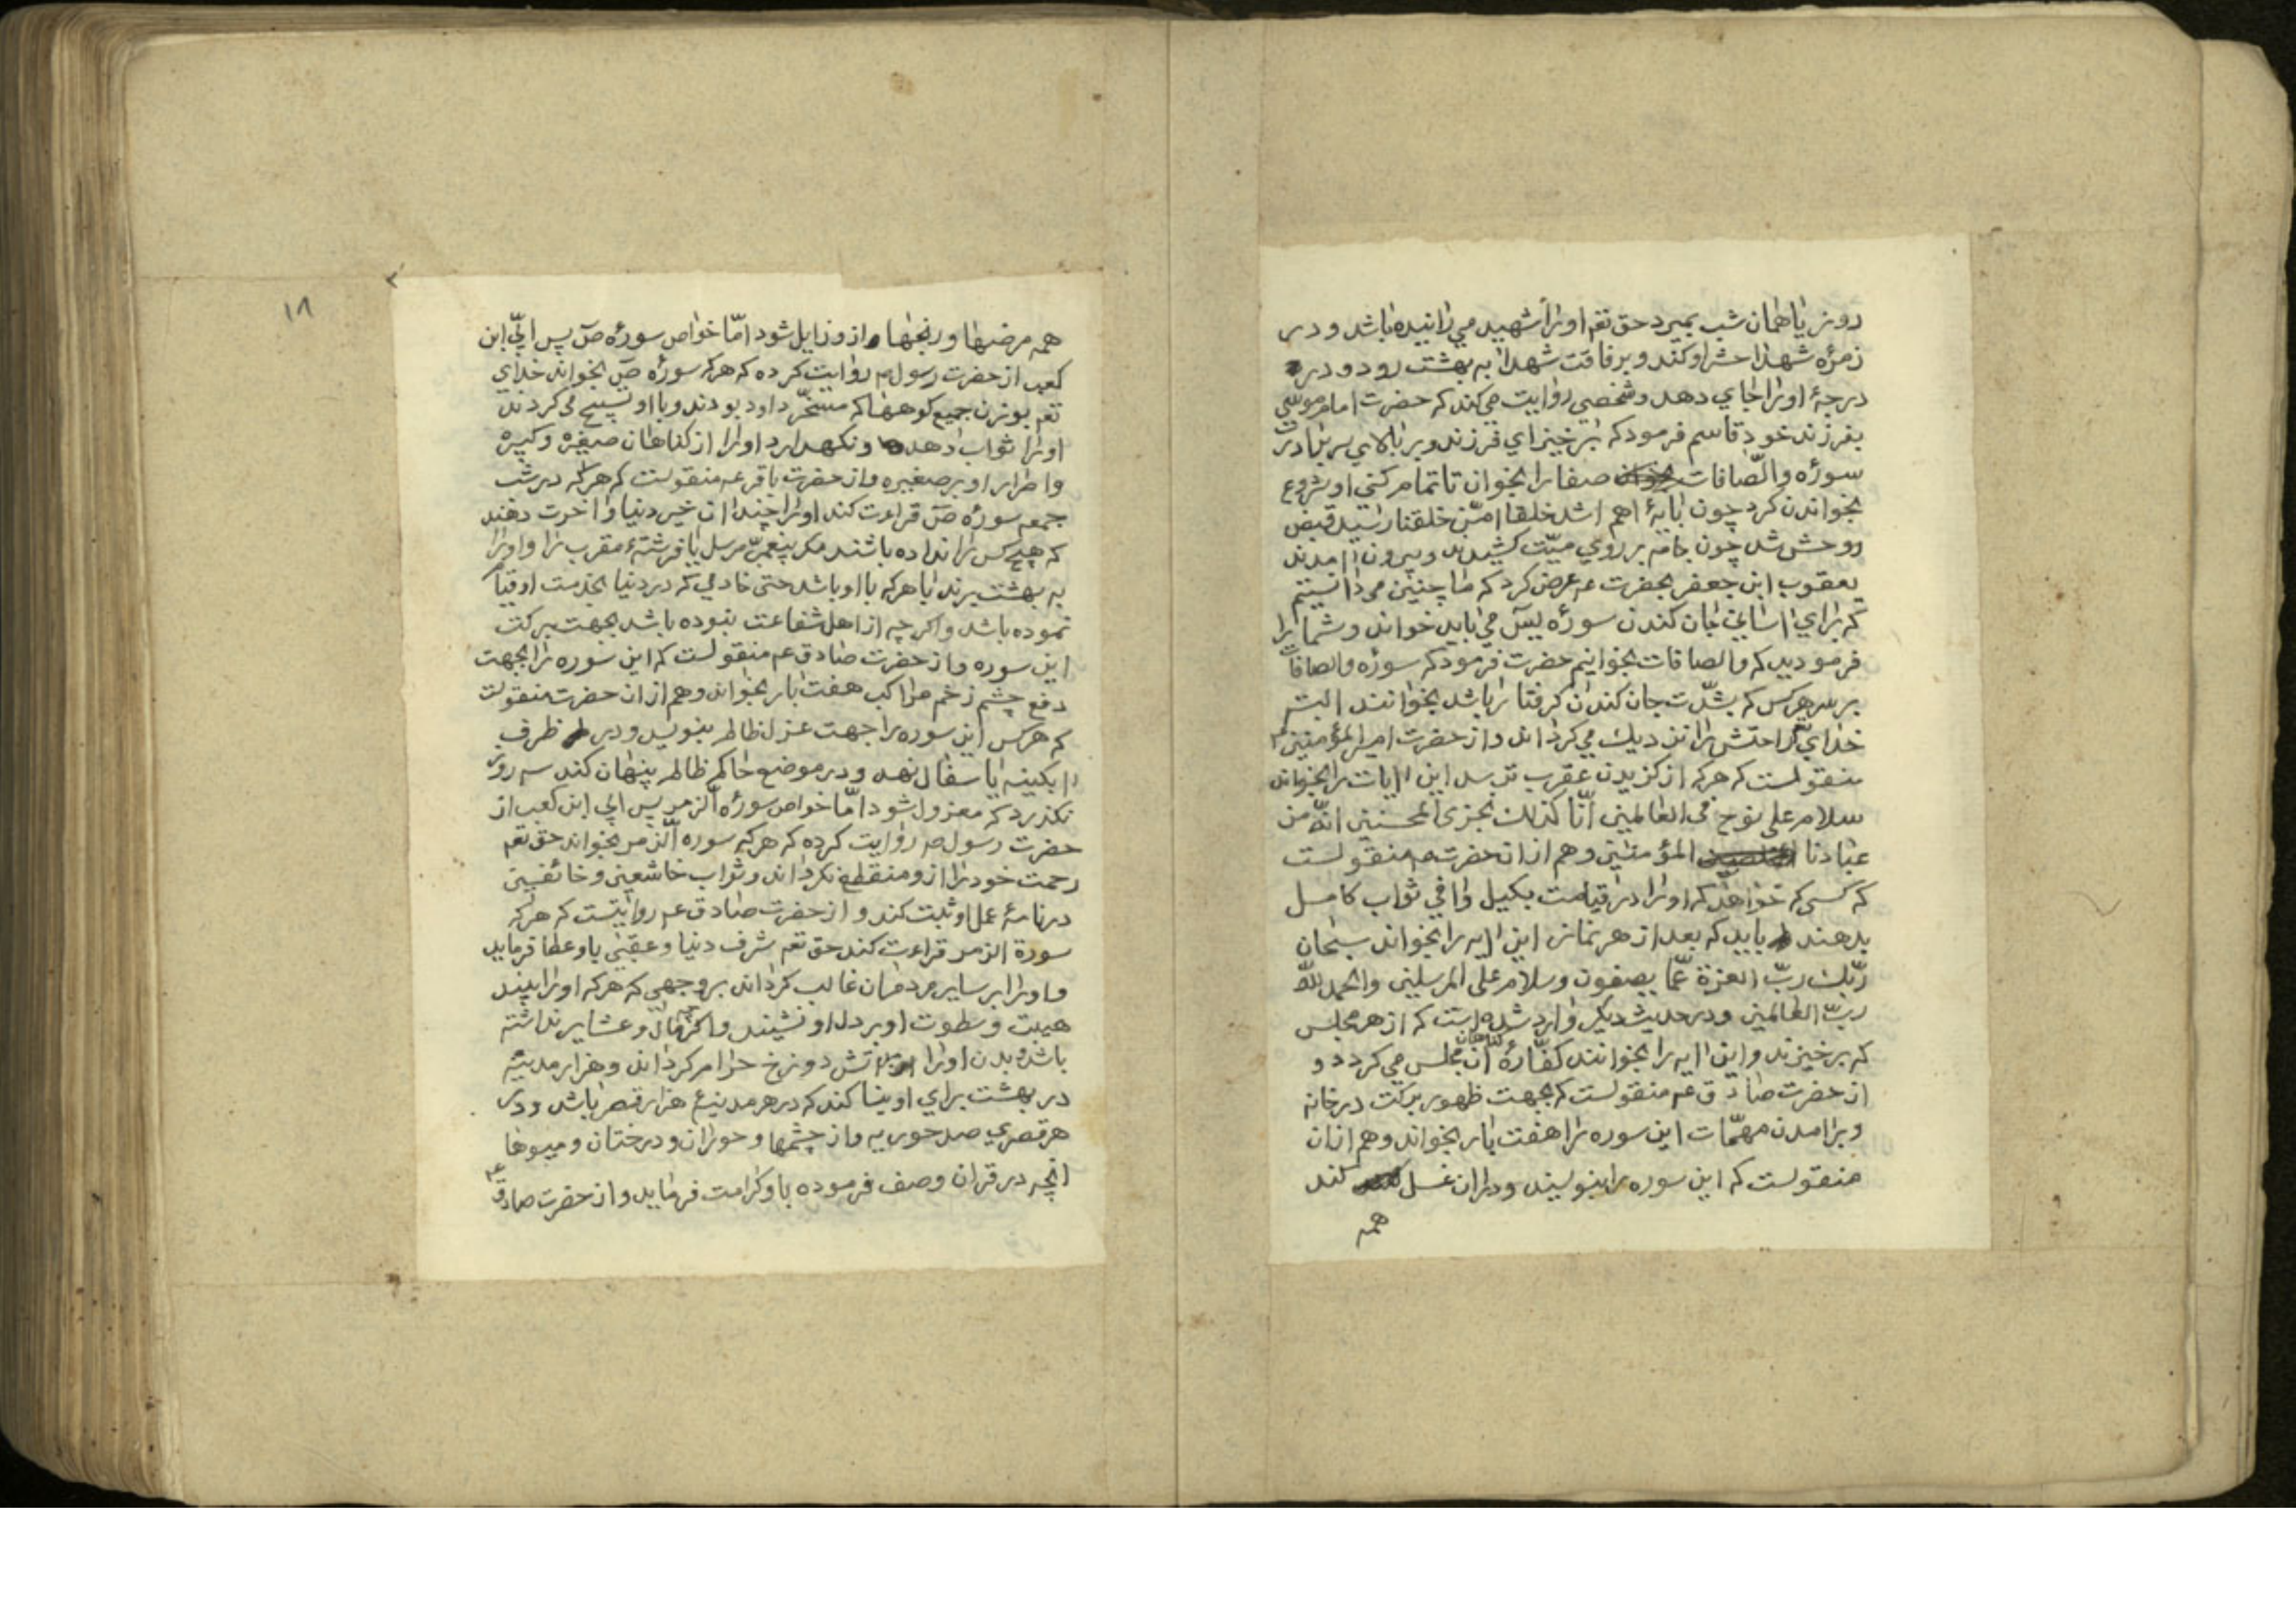 روز یا همان شب بمیرد حق تعم اورا شهید می رانیده باشد و در
زمرهٔ شهدا حشر او کند و برفاقت شهدا به بهشت رود و در
درجهٔ اورا جای دهد و شخصی روایت می کند که حضرت امام موسی
بفرزند خود قاسم فرمود که برخیز ای فرزند و بر بالای سر برادرت
سورهٔ والصّافات صفا را بخوان تا تمام کنی او شروع
بخواندن کرد چون بایهٔ اهم اشد خلقا امّن خلقنا رسید قبض
روحش شد چون جامه بر روی میّت کشیدند و بیرون آمدند
یعقوب ابن جعفر بحضرت عم عرض کرد که ما چنین می دانستیم
که برای اسانی جان کندن سورهٔ یسٓ می باید خواند و شما را
فرمودید که والصافات بخوانیم حضرت فرمود که سورهٔ والصافات
بر سر هر کس که بشدّت جان کندن گرفتار باشد بخوانند البته
خدای تعم راحتش را نزدیك می گرداند و از حضرت امیر المؤمنین عم
منقولست که هر که از گزیدن عقرب ترسد این ایات را بخواند
سلام علی نوح فی العالمین انّا کذلك نجزی المحسنین انّه من
عبادنا المؤمنین و هم از ان حضرت عم منقولست
که کسی که خواهد که اورا در قیامت بکیل وافی ثواب کامل
بدهند باید که بعد از هر نماز این ایه را بخواند سبحان
ربّك ربّ العزة عمّا یصفون وسلام علی المرسلین والحمد للّه
ربّ العالمین و در حدیث دیگر وارد شده است که از هر مجلس
که برخیزند و این ایه را بخوانند کفّارهٔ گناهان آن مجلس می گردد و
از حضرت صادق عم منقولست که بجهت ظهور برکت در خانه
و برامدن مهمّات این سوره را هفت بار بخواند و هم از ان
منقولست که این سوره را بنویسند و در ان غسل کند
همه
۱۸
همه مرضها و رنجها از و زایل شود امّا خواص سورهٔ صٓ پس ابیّ ابن
کعب از حضرت رسول صم روایت کرده که هر که سورهٔ صٓ بخواند خدای
تعم بوزن جمیع کوهها که مسخّر داود بودند و با او تسبیح می کردند
اورا ثواب دهد و نگهدارد اورا از گناهان صغیره و کبیره
و اصرار او بر صغیره و از حضرت باقر عم منقولست که هر که در شب
جمعه سورهٔ صٓ قراءت کند اورا چندان خیر دنیا و اخرت دهند
که هیچ کس را نداده باشند مگر پیغمبر مرسل یا فرشتهٔ مقرب را و اورا
به بهشت برند با هر که با او باشد حتی خادمی که در دنیا بخدمت او قیام
نموده باشد و اگر چه از اهل شفاعت نبوده باشد بجهت برکت
این سوره و از حضرت صادق عم منقولست که این سوره را بجهت
دفع چشم زخم مراکب هفت بار بخواند و هم از ان حضرت منقولست
که هر کس این سوره را جهت عزل ظالم بنویسد و در ظرف
ابکینه یا سفال نهد و در موضع حاکم ظالم پنهان کند سه روز
نگذرد که معزول شود امّا خواص سورهٔ الزمر پس ابی ابن کعب از
حضرت رسول صم روایت کرده که هر که سوره الزمر بخواند حق تعم
رحمت خود را از و منقطع نگرداند و ثواب خاشعین و خائفین
در نامهٔ عمل او ثبت کند و از حضرت صادق عم روایتست که هر که
سورة الزمر قراءت کند حق تعم شرف دنیا و عقبی باو عطا فرماید
و اورا بر سایر مردمان غالب گرداند بروجهی که هر که اورا بیند
هیبت و سطوت او بر دل او نشیند و اگر چه مال و عشایر نداشته
باشد و بدن اورا بر اتش دوزخ حرام گرداند و هزار مدینه
در بهشت برای او بنا کند که در هر مدینهٔ هزار قصر باشد و در
هر قصری صد حوریه و از چشمها و حوران و درختان و میوها
انچه در قران وصف فرموده باو کرامت فرماید و از حضرت صادق عم